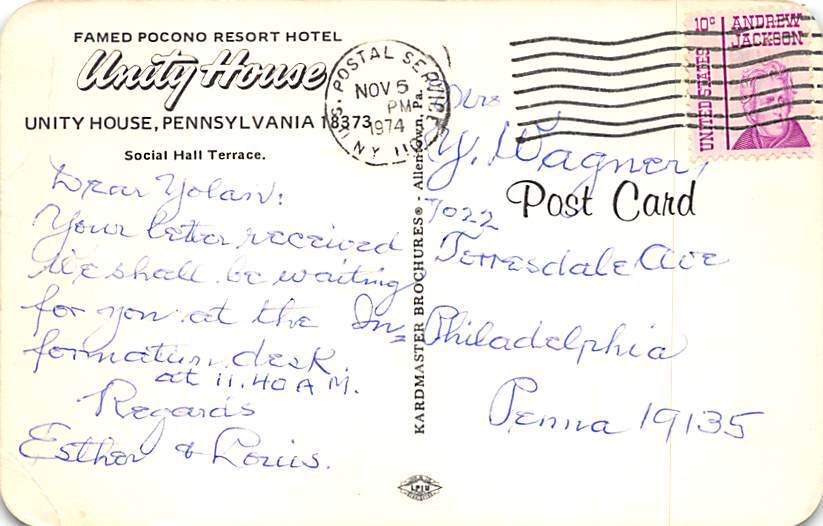 FAMED POCONO RESORT HOTEL
Unity House
UNITY HOUSE, PENNSYLVANIA 18373
Social Hall Terrace.
Dear Yolan:
Your letter received
We shall be waiting
for you at the In=
formation desk
at 11.40 A M.
Regards
Esther & Louis.
KARDMASTER BROCHURES® - Allentown, Pa.
POSTAL SERVICE
NOV 5
PM
1974
NY 110
10c ANDREW
JACKSON
UNITED STATES
Mrs
Y. Wagner,
Post Card
7022
Terresdale Ave
Philadelphia
Penna 19135